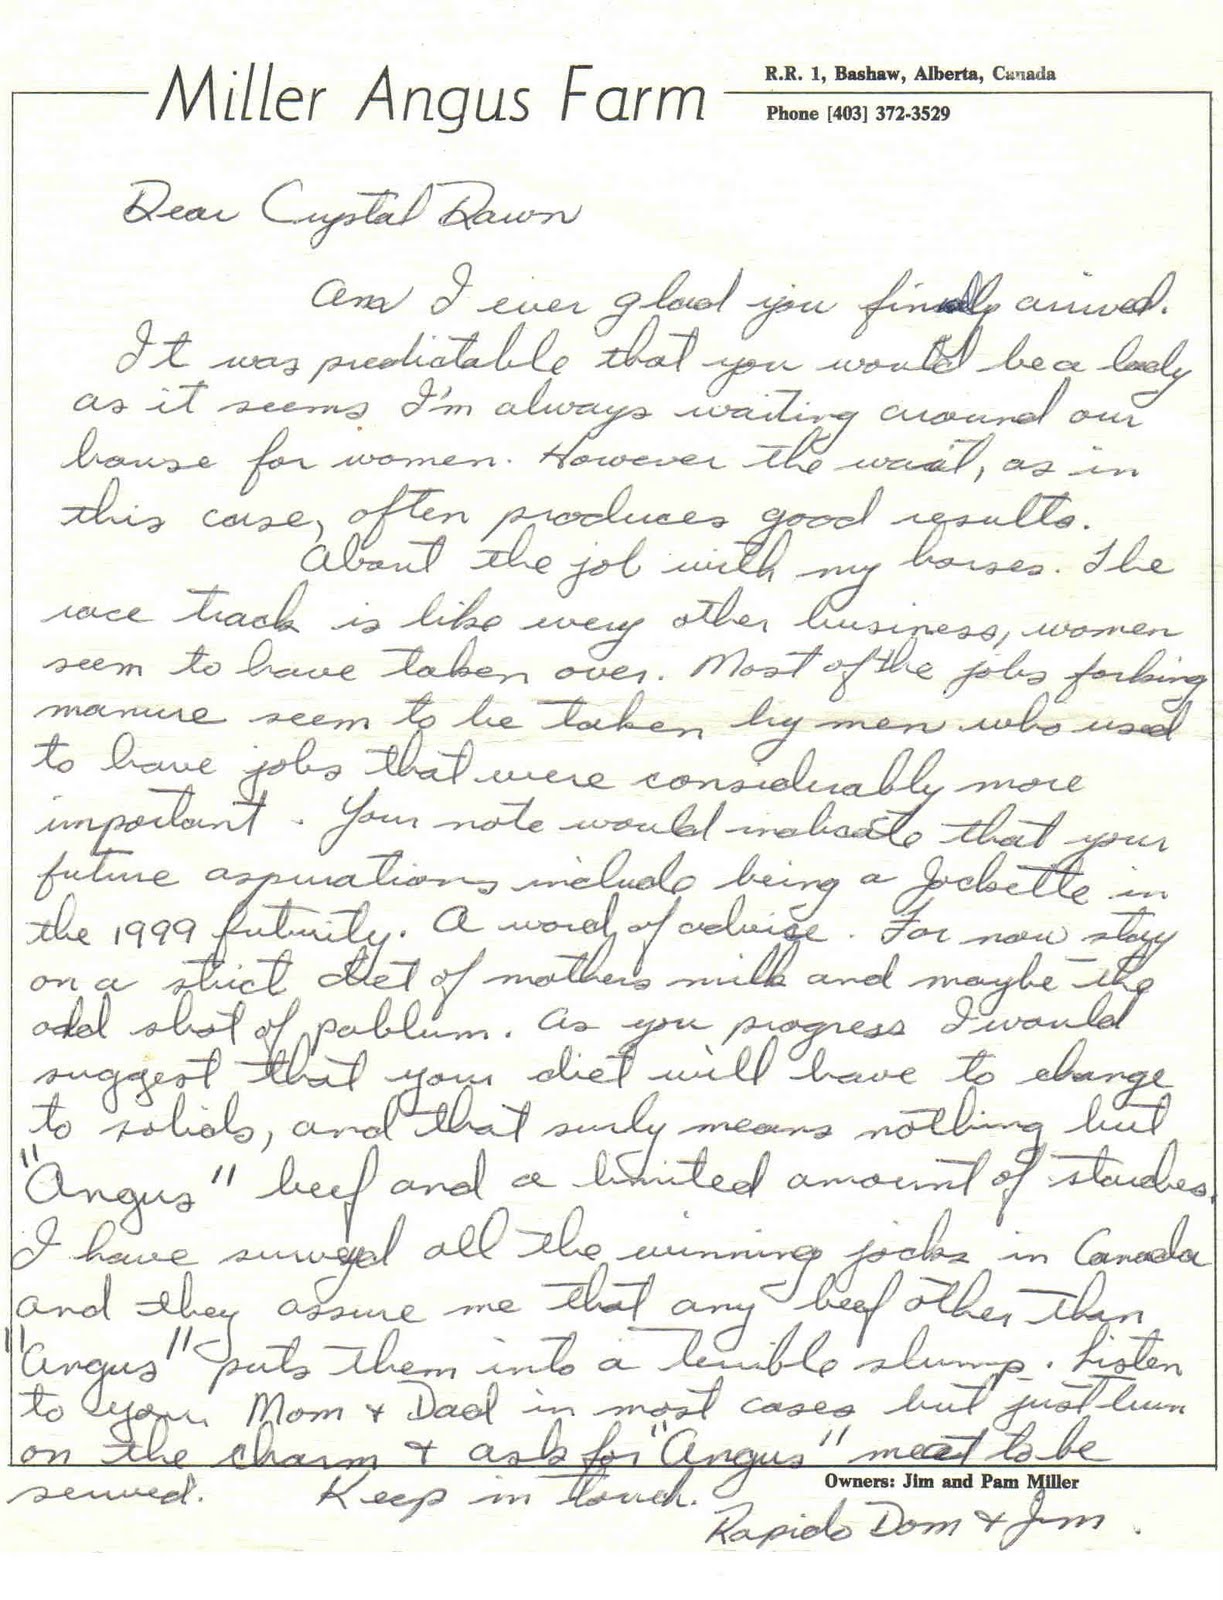 Miller Angus Farm
R.R. 1, Bashaw, Alberta, Canada
Phone [403] 372-3529
Dear Crystal Dawn
Am I ever glad you finally arrived.
It was predictable that you would be a lady
as it seems I'm always waiting around our
house for women. However the wait, as in
this case, often produces good results.
About the job with my horses. The
race track is like every other business, women
seem to have taken over. Most of the jobs forking
manure seem to be taken by men who used
to have jobs that were considerably more
important. Your note would indicate that your
future aspirations include being a Jockette in
the 1999 futurity. A word of advise. For now stay
on a strict diet of mothers milk and maybe the
odd shot of pablum. As you progress I would
suggest that your diet will have to change
to solids, and that surly means nothing but
"Angus" beef and a limited amount of starches.
I have surveyd all the winning jocks in Canada
and they assure me that any beef other than
"Angus" puts them into a terrible slump. Listen
to your Mom & Dad in most cases but just turn
on the charm & ask for "Angus" meat to be
served. Keep in touch.
Owners: Jim and Pam Miller
Rapido Dom & Jim.